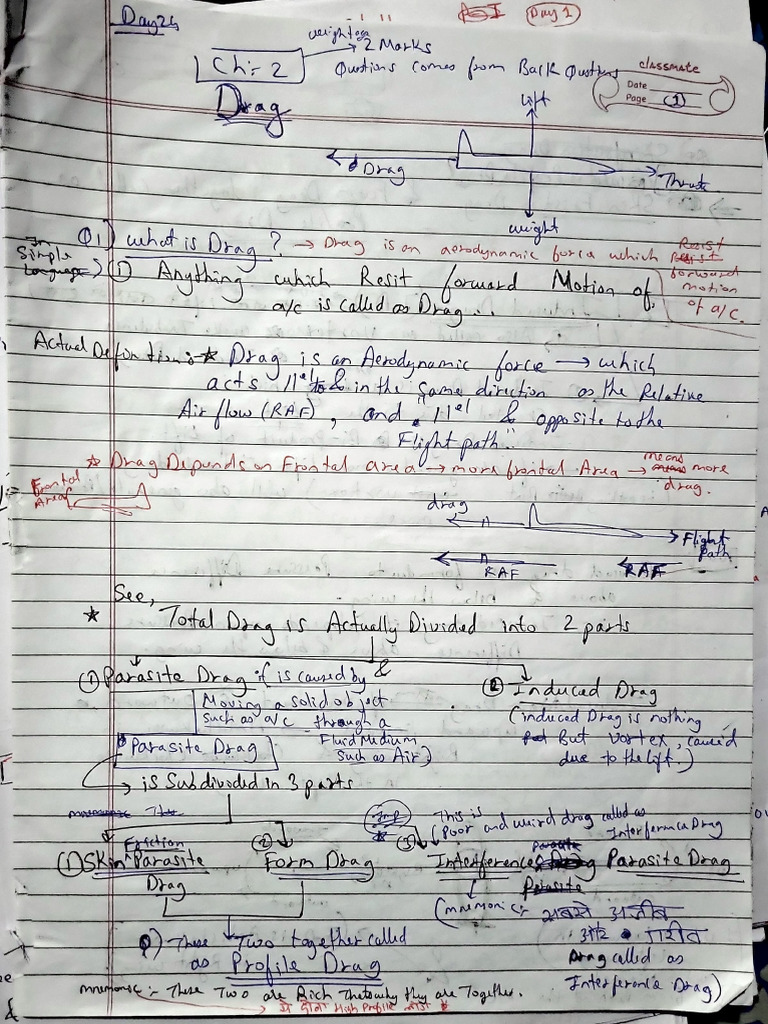 Day 24
Day 1
weightage
Ch:- 2 → 2 Marks
Qustions comes from Back Qustions
classmate
Date
Page (1)
Drag
Lift
Drag
Thrute
weight
Q1) what is Drag ? → Drag is an aerodynamic force which Resist
forward
motion
of a/c.
In
Simple
Language
① Anything which Resit forward Motion of
a/c is called as Drag..
Actual Defintion:- * Drag is an Aerodynamic force → which
acts llel to & in the same direction as the Relative
Air flow (RAF), and llel & opposite to the
Flight path..
* Drag Depends on Frontal area → more frontal Area → means more
drag.
Frontal
Area
drag
Flight
path
RAF
RAF
See,
* Total Drag is Actually Divided into 2 parts
① Parasite Drag :( is caused by &
Moving a solid object
such as a/c through a
Fluid Medium
such as Air)
② Induced Drag
(induced Drag is nothing
But vortex, caused
due to the lift.)
Parasite Drag
→ is Subdivided in 3 parts
Imp
*
This is
(Poor and weird drag called as
Interference Drag
Friction
① Skin Parasite
Drag
② Form Drag
③ Interference Parasite Drag
(mnemonic:- सबसे अजीब
और गरीब
Drag called as
Interference Drag)
These Two together called
as Profile Drag
mnemonic:- These Two are Rich Thatswhy they are Together.
→ ये दोनों High Profile